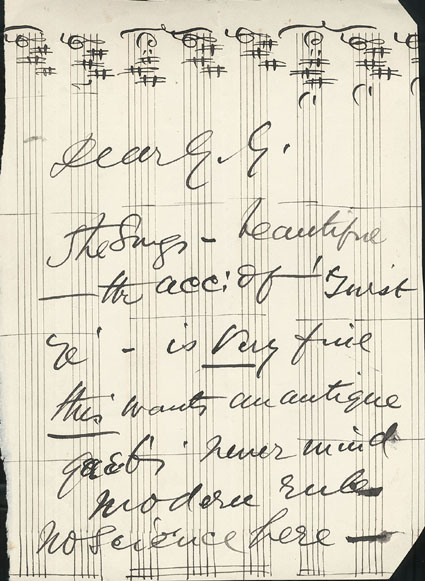 Dear G. G.
The Songs – beautiful
— the acc: of – 'Twist
Ye' – is very fine
this wants an antique
never mind
modern rules
no science here —